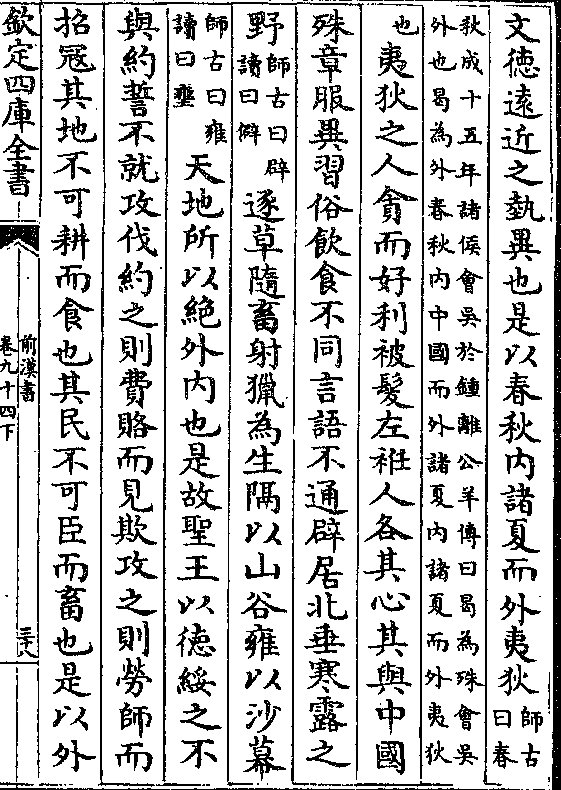 文德遠近之埶異也是以春秋内諸夏而外夷狄師古曰春
秋成十五年諸侯會吳於鍾離公羊傳曰曷為殊會吳
外也曷為外春秋内中國而外諸夏内諸夏而外夷狄
也夷狄之人貪而好利被髮左袵人各其心其與中國
殊章服異習俗飲食不同言語不通辟居北垂寒露之
野師古曰辟讀曰僻逐草隨畜射獵為生隔以山谷雍以沙幕
師古曰雍讀曰壅天地所以絶外内也是故聖王以德綏之不
與約誓不就攻伐約之則費賂而見欺攻之則勞師而
招冦其地不可耕而食也其民不可臣而畜也是以外
欽定四庫全書
前漢書
卷九十四下